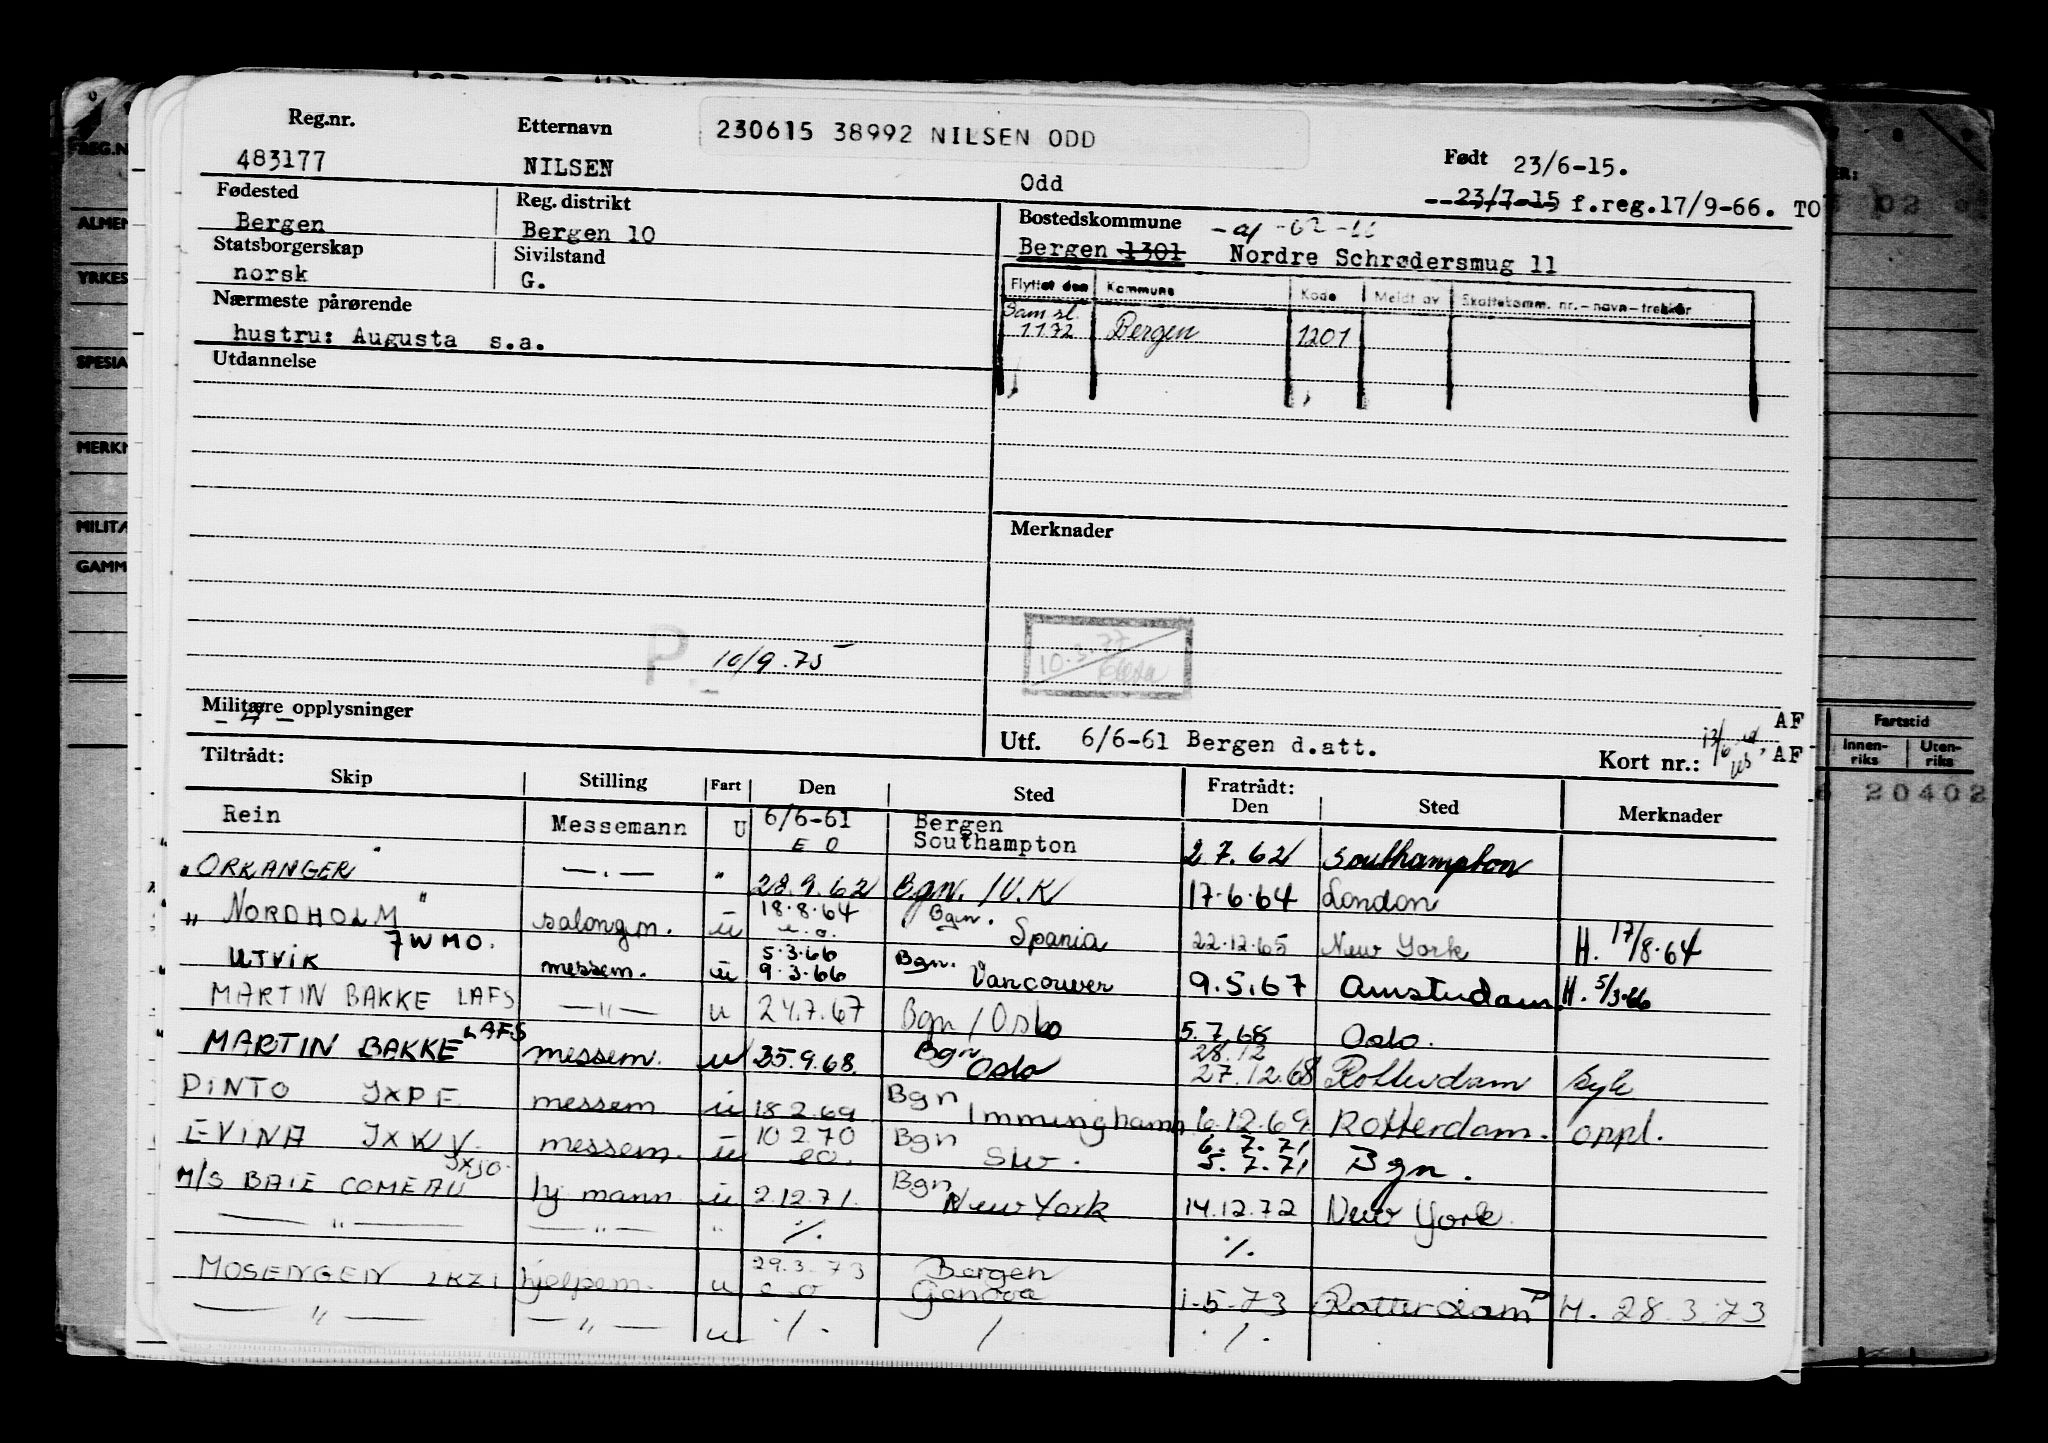 230615 38992 NILSEN ODD
Reg.nr. Etternavn Født 23/6-15.
483177 NILSEN Odd
23/7-15 f.reg.17/9-66. TO
Fødested Reg. distrikt Bostedskommune
Bergen Bergen 10 Bergen 1301 Nordre Schrødersmug 11
Statsborgerskap Sivilstand
norsk G.
Flyttet den Kommune Kode Meldt av Skattekomm. nr. - navn - trekkår
Sam sl.
1.1.72 Bergen 1201
Nærmeste pårørende
hustru: Augusta s.a.
Utdannelse
Merknader
P. 10/9.75
10.3.77
Militære opplysninger
AF
Utf. 6/6-61 Bergen d.att. Kort nr.: AF
Tiltrådt: Fratrådt:
Skip Stilling Fart Den Sted Den Sted Merknader
Rein Messemann U 6/6-61 Bergen
E O Southampton 2.7.62 Southampton
"ORKANGER" —.— " 28.9.62 Bgn. / U.K 17.6.64 London
" NORDHOLM " salongm. u 18.8.64 e.o. Bgn. Spania 22.12.65 New York H. 17/8.64
UTVIK 7WMO. messem. u 5.3.66 9.3.66 Bgn. Vancouver 9.5.67 Amsterdam H. 5/3.66
MARTIN BAKKE LAFS —"— u 24.7.67 Bgn / Oslo 5.7.68 Oslo.
MARTIN BAKKE LAFS messem. u 25.9.68. Bgn Oslo 28.12 27.12.68 Rotterdam syk
PINTO JXPF messem u 18.2.69 Bgn Immingham 6.12.69 Rotterdam. oppl.
EVINA JXWV messem. u 10.2.70 eo. Bgn 6.7.71 5.7.71 Bgn.
M/S BAIE COMEAU JXJO hj. mann u 2.12.71. Bgn New York 14.12.72 New York.
—"— —"— " ./. ./.
MOSENGEN LKZI hjelpem. u 29.3.73 e o Bergen Genova 1.5.73 Rotterdam H. 28.3.73
—"— —"— u ./. / ./.
REG.N
ALMEN
YRKES
SPESIA
MERKN
MILITA
GAMM
Fartstid
Innen-riks Uten-riks
20402